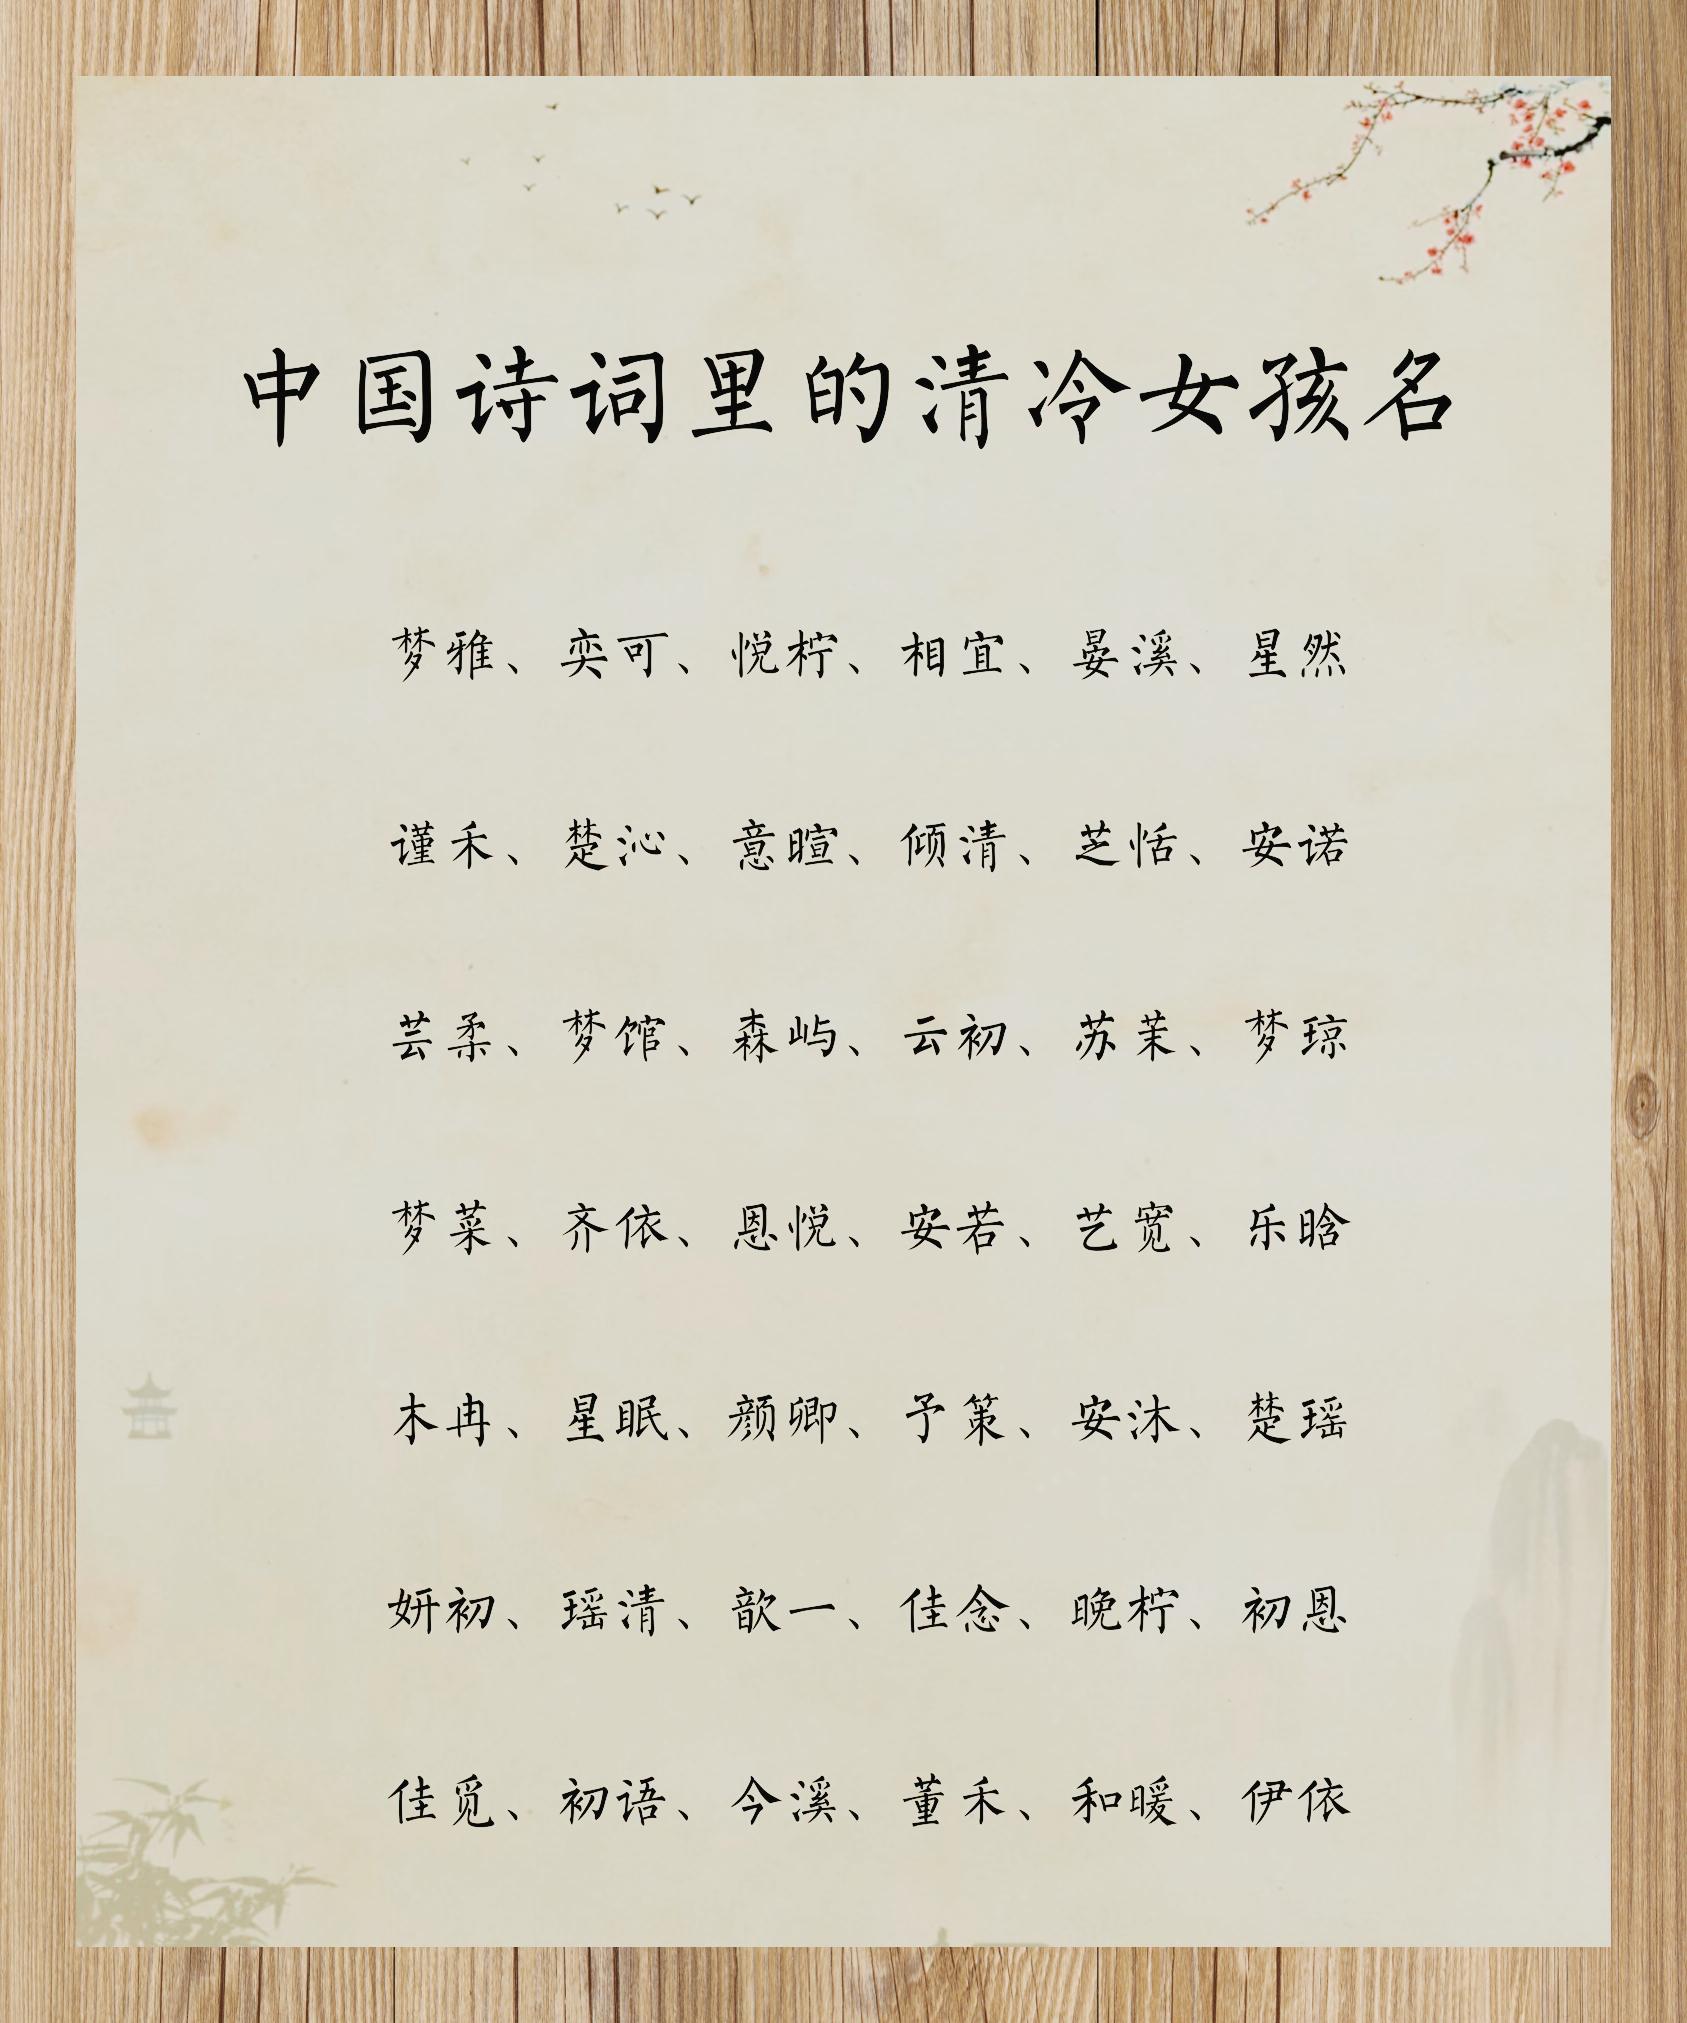 中国诗词里的清冷女孩名
梦雅、奕可、悦柠、相宜、晏溪、星然
谨禾、楚沁、意暄、倾清、芝恬、安诺
芸柔、梦馆、森屿、云初、苏茉、梦琼
梦菜、齐依、恩悦、安若、艺宽、乐晗
木冉、星眠、颜卿、予策、安沐、楚瑶
妍初、瑶清、歆一、佳念、晚柠、初恩
佳觅、初语、今溪、董禾、和暖、伊依